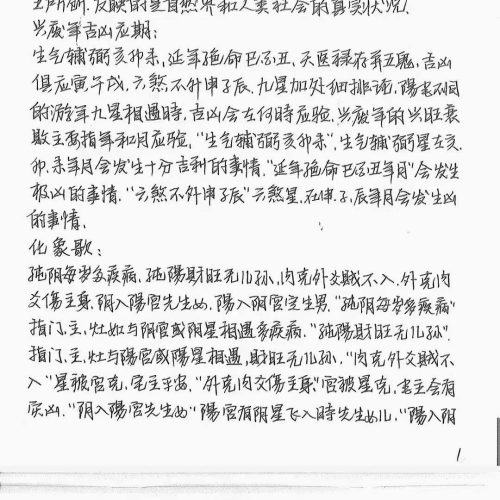 生所研,反映的是自然界和人类社会的真实状况.
兴废年吉凶应期:
生气辅弼亥卯未,延年绝命巳酉丑,天医禄存并五鬼,吉凶
俱应寅午戌,六煞不外申子辰,九星加处细排论,陽宅不同
的游年九星相遇時,吉凶会在何時应验.兴废年的兴旺衰
败主要指年和月应验,"生气辅弼亥卯未",生气辅弼星在亥.
卯.未年月会发生十分吉利的事情."延年绝命巳酉丑年月"会发生
极凶的事情."六煞不外申子辰"六煞星.在申.子.辰年月会发生凶
的事情.
化象歌:
纯阴每岁多疾病.纯陽財旺无儿孙,内克外交贼不入.外克内
交傷主身.阴入陽宫先生女.陽入阴宫定生男."纯阴每岁多疾病"
指门.主.灶如与阴宫或阴星相遇多疾病."纯陽財旺无儿孙".
指门.主.灶与陽宫或陽星相遇,財旺无儿孙."内克外交贼不
入"星被宫克,宅主平安."外克内交傷主身"宫被星克,宅主会有
灾凶."阴入陽宫先生女"陽宫有阴星飞入時先生女儿."陽入阴
1